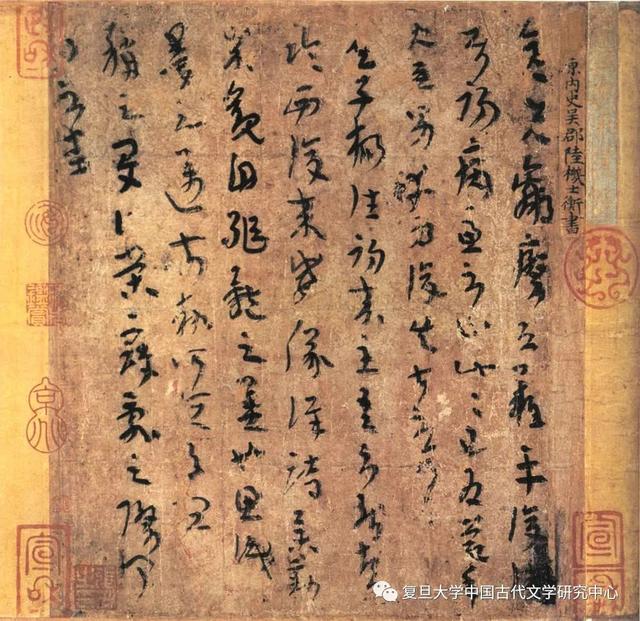 晉內史吳郡陸機士衡書
彥先羸瘵恐難平復往屬
初病慮不止此此已為慶承
使唯男幸為復失前憂耳
吳子楊往初來主吾不能盡
臨西復來威儀詳跱舉動
成觀自軀體之美也思識
量之邁前執所恒有宜
稱之夏伯榮寇亂之際聞
問不悉
宣和
復旦大学中国古代文学研究中心